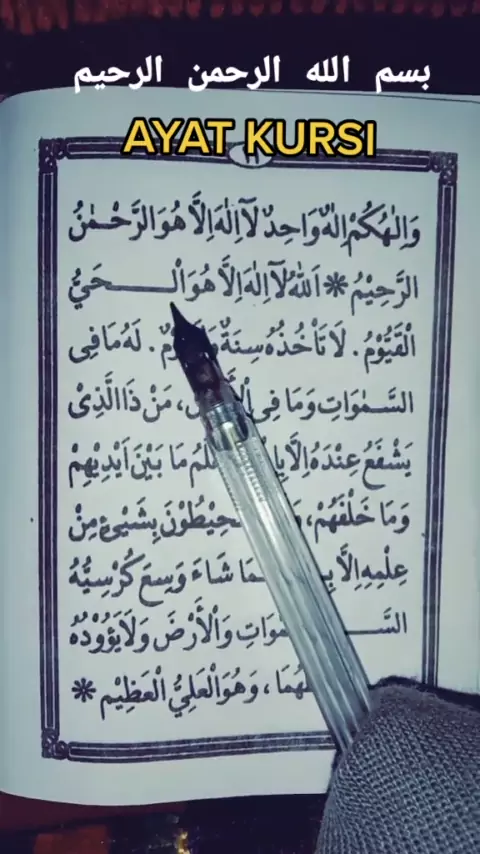 بسم الله الرحمن الرحيم
AYAT KURSI
وَاِلٰهُكُمْ اِلٰهٌ وَاحِدٌ لَآ اِلٰهَ اِلَّا هُوَ الرَّحْمٰنُ
الرَّحِيْمُ * اَللهُ لَآ اِلٰهَ اِلَّا هُوَ الْـحَيُّ
الْقَيُّوْمُ. لَا تَأْخُذُهُ سِنَةٌ. لَهُ مَا فِى
السَّمٰوَاتِ وَمَا فِى، مَنْ ذَا الَّذِىْ
يَشْفَعُ عِنْدَهُ اِلَّا مَا بَيْنَ اَيْدِيْهِمْ
وَمَا خَلْفَهُمْ، بِشَيْئٍ مِنْ
عِلْمِهِ اِلَّا شَاءَ وَسِعَ كُرْسِيُّهُ
وَالْأَرْضَ وَلَا يَؤُوْدُهُ
، وَهُوَ الْعَلِيُّ الْعَظِيْم *